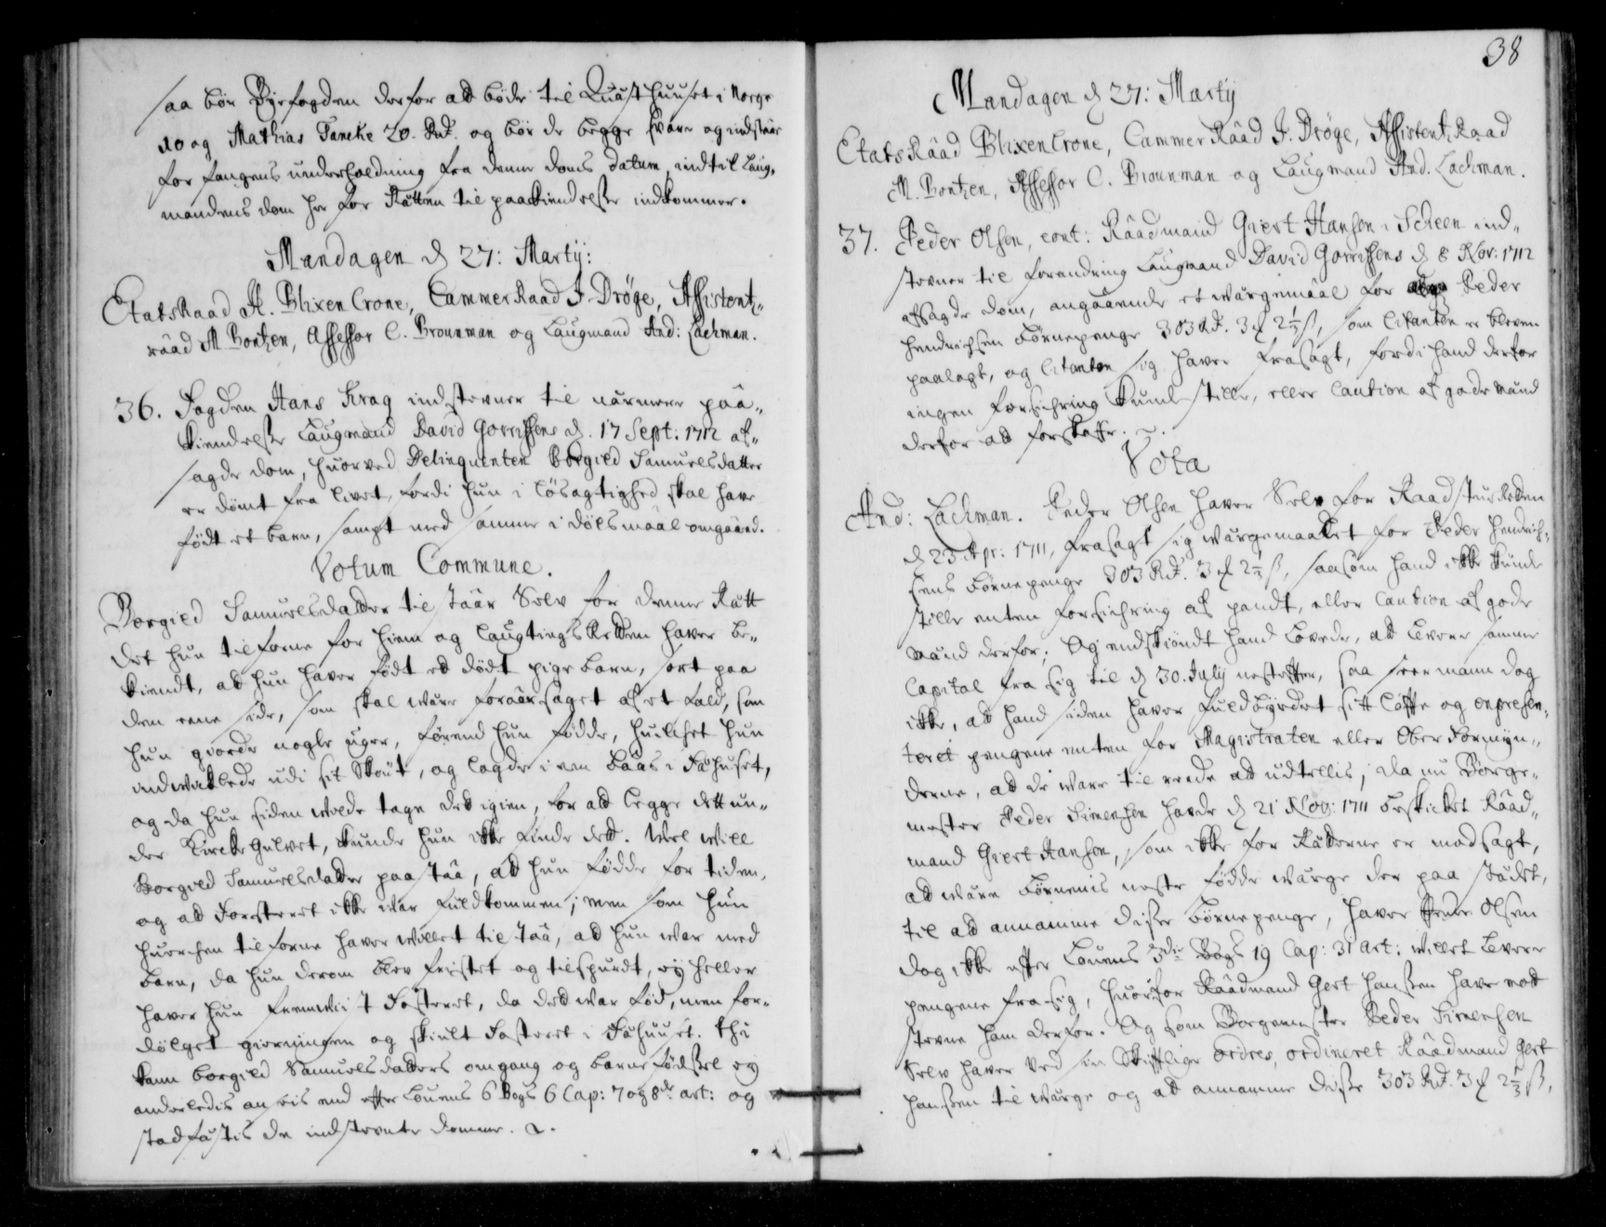 saa bør Byefogden derfor at bøde til Quæsthuuset i Norge
10 og Mathias Tancke 20. Rd. og bør de begge svare og indstaae
for fangens underholdning fra denne doms datum, indtil Laug-
mandens dom her for Rætten til paakiendelse indkommer.
Mandagen d 27: Martij:
EtatsRaad H. Blixen Crone, CammerRaad J. Drøge, Assistentz-
raad M Bentzen, Assessor C. Brounman og Laugmand And: Lachman.
36. Fogden Hans Krag indstevner til nærmere paa-
kiendelse Laugmand David Gorrissens d. 17 Sept: 1712 af-
sagde dom, huorved Delinquenten Borgild Samuelsdatter
er dømt fra livet, fordi hun i løsagtighed skal have
født et barn, sampt med samme i dølsmaal omgaaed.
Votum Commune.
Borgild Samuelsdatter til staar Selv for denne Rætt
det hun tilforne for hiem og laugtings Retten haver be-
kiendt, at hun haver født et dødt pige barn, sort paa
den eene side, som skal være foraarsaget af et fald, som
hun giorde nogle uger, førend hun fødde, huilchet hun
indviklede udi sit Skiøt, og lagde i een baas i Fæhuset,
og da hun siden wolde tage det igien, for at legge dett un-
der Kircke Gulvet, kunde hun ikke finde dett. Vel will
Borgild Samuelsdatter paastaa, at hun fødde for tiden,
og at Fosteret ikke var fuldkommen; men som hun
huerchen tilforne haver willet til staa, at hun war med
barn, da hun derom blev fristet og tilspurdt, ey heller
haver hun fremviist Fosteret, da det war fød, men for-
dølget gierningen og skiult Fosteret i Fæhuuset. thi
kann borgild Samuelsdatters omgang og barne fødsel ey
anderledis ansees end effter Lovens 6 Bogs 6 Cap: 7 og 8de art: og
stadfæstis de indstevnte domme.
38
Mandagen d 27: Martij
EtatsRaad BlixenCrone, CammerRaad J. Drøge, AssistentzRaad
M. Bentzen, Assessor C. Brounman og Laugmand And. Lachman.
37. Peder Olsen, cont: Raadmand Giert Hansen i Scheen ind-
stevner til forandring Laugmand David Gorrissens d 8 Nov: 1712
afsagde dom, angaaende et wærgemaal for Peder
Hendrichsen børnepenge 303 Rd. 3 2½ ß, som Citanten er bleven
paalagt, og Citanten sig haver frasagt, fordi hand derfor
ingen forsichring kunde stille, eller Caution af gode mænd
derfor at forskaffe.
Vota
And: Lachman. Peder Olsen haver Selv for Raadstue Retten
d 23 Apr: 1711, frasagt sig wærgemaalet for Peder Hendrich-
sens børnepenge 303 Rd. 3 2½ ß, saasom hand ikke kunde
stille enten forsichring af pandt, eller Caution af gode
mænd derfor; Og endskiøndt hand lovede, at levere samme
Capital fra sig til d 30. July nesteffter, saa seer mann dog
ikke, at hand siden haver fuldbyrdet sitt løffte og præsen-
teret pengene enten for Magistraten eller Ober Formyn-
derne, at de ware til reede at udtellis; da nu Borge-
mester Peder Simensen havde d 21 Nov: 1711 beskicket Raad-
mand Giert Hansen, som ikke for Rætterne er modsagt,
at være børnenis neste fødde werge der paa stædet,
til at annamme disse børnepenge, haver Peder Olsen
dog ikke effter Lovens 3die Bogs 19 Cap: 31 art: willet levere
pengene fra sig, huorfor Raadmand Gert Hanssen have maat
stevne ham derfor. Og som Borgemester Peder Simensen
Selv haver ved sin Skrifftlige ordres, ordineret Raadmand Gert
Hanssen til wærge og at annamme disse 303 Rd. 3 2½ ß,